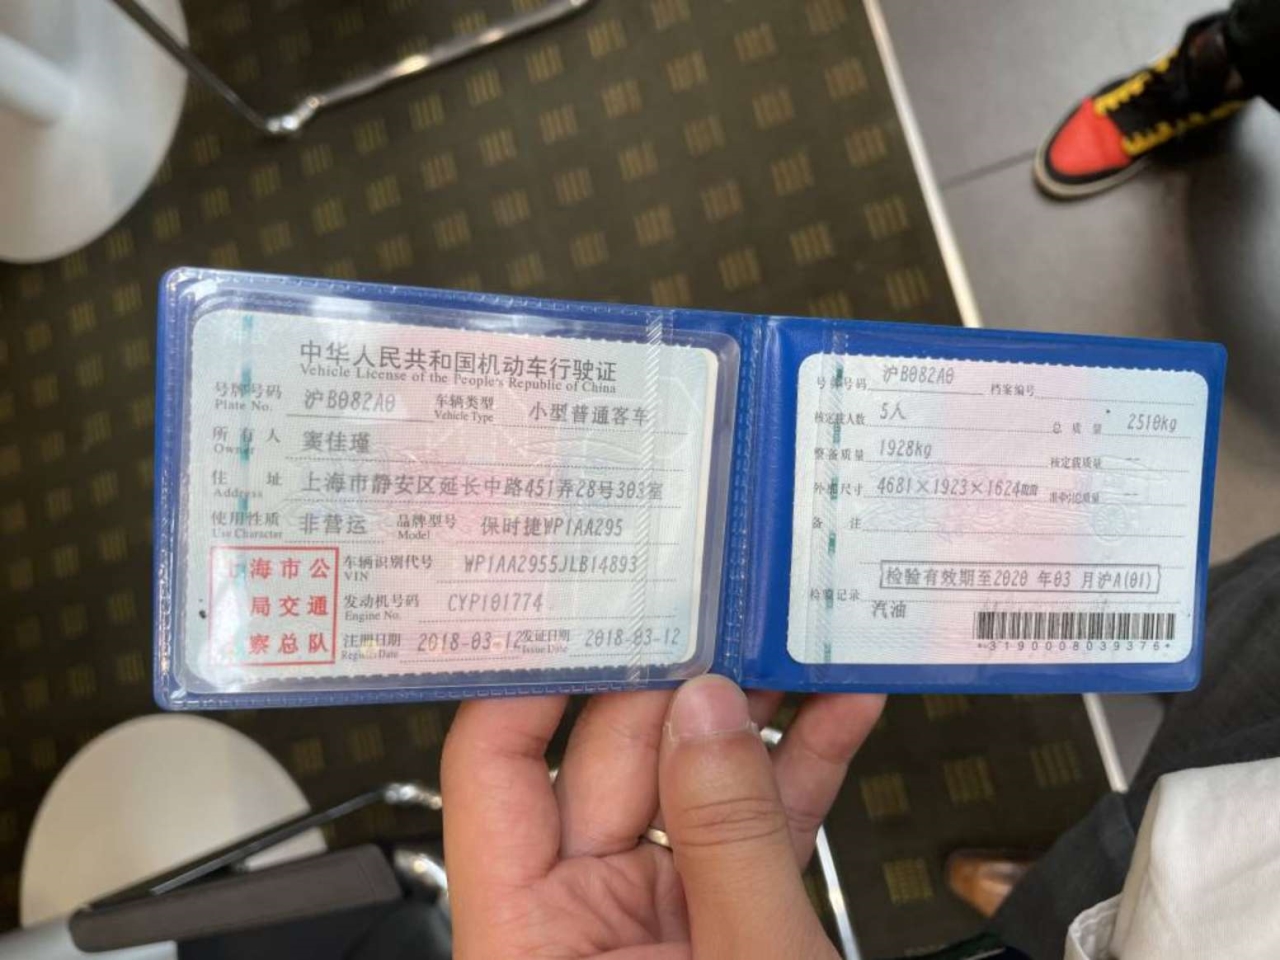 中华人民共和国机动车行驶证
Vehicle License of the People's Republic of China
号牌号码 沪B082A0 车辆类型 小型普通客车
Plate No. Vehicle Type
所有人 窦佳瑾
Owner
住址 上海市静安区延长中路451弄28号303室
Address
使用性质 非营运 品牌型号 保时捷WP1AA295
Use Character Model
海市公
局交通
察总队
车辆识别代号 WP1AA2955JLB14893
VIN
发动机号码 CYP101774
Engine No.
注册日期 2018-03-12 发证日期 2018-03-12
Register Date Issue Date
号牌号码 沪B082A0 档案编号
核定载人数 5人 总质量 2510kg
整备质量 1928kg 核定载质量 --
外廓尺寸 4681×1923×1624mm 准牵引总质量 --
备注
检验有效期至2020年03月沪A(01)
检验记录
汽油
*3190008039376*